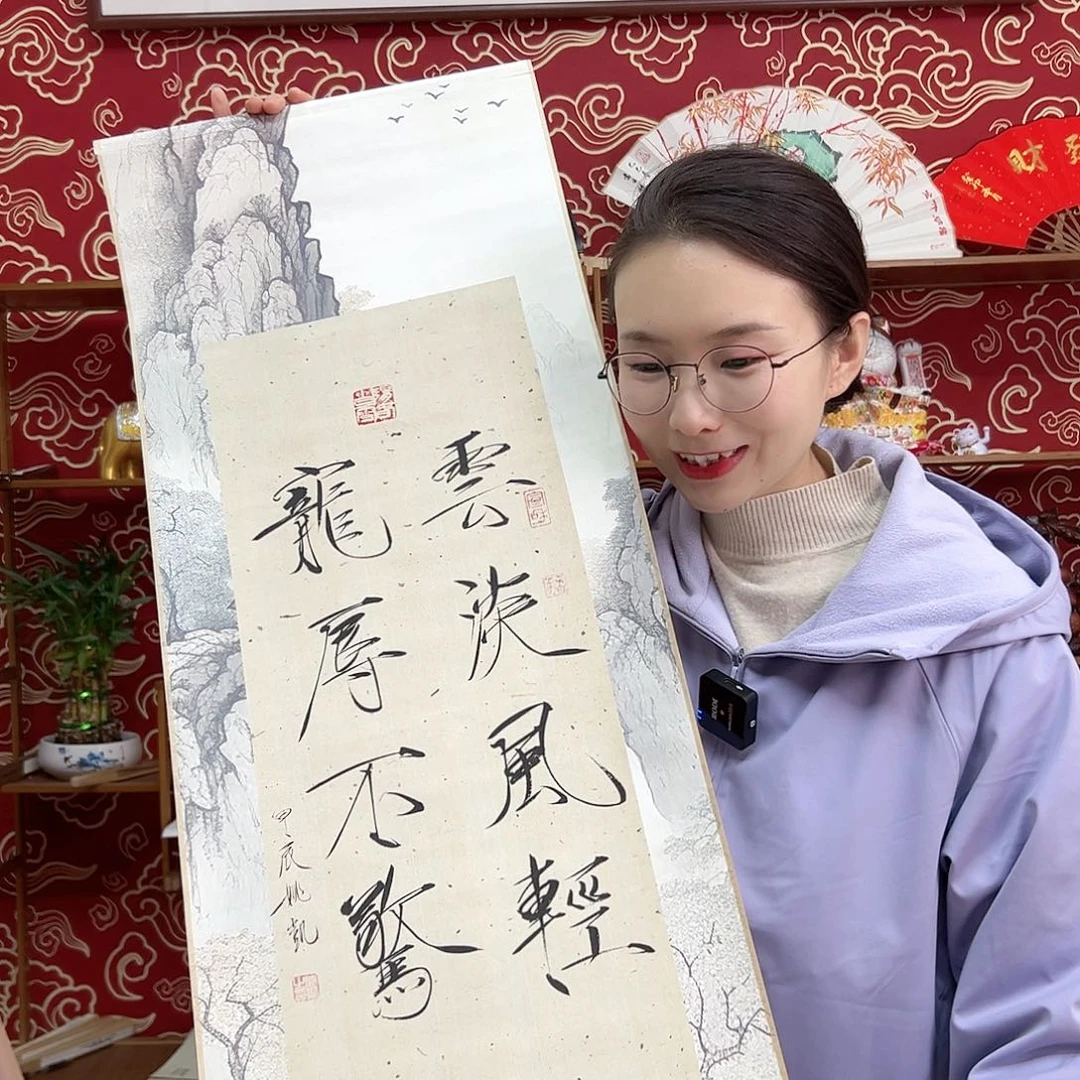 雲淡風輕
寵辱不驚
甲辰姚凱
財
RODE